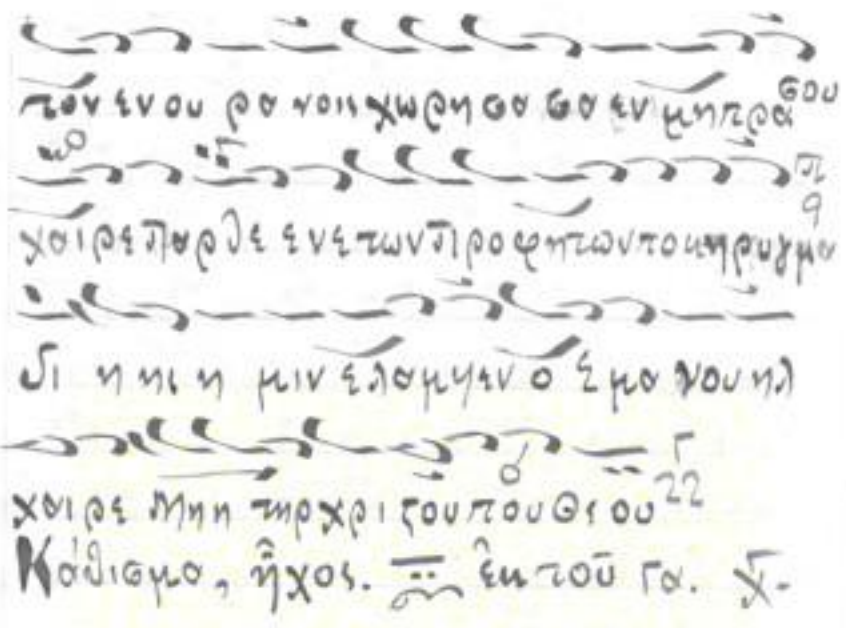 τον εν ου ρα νοις χωρη σα σα εν μητρα σου
χαιρε Παρθε ε νε των Προφητων το κηρυγμα
δι η ης η μιν ελαμψεν ο Ε μα νου ηλ
χαιρε Μη η τηρ Χρι ςου του Θε ου
Κάθισμα, ἦχος. ἐκ τοῦ Γα.